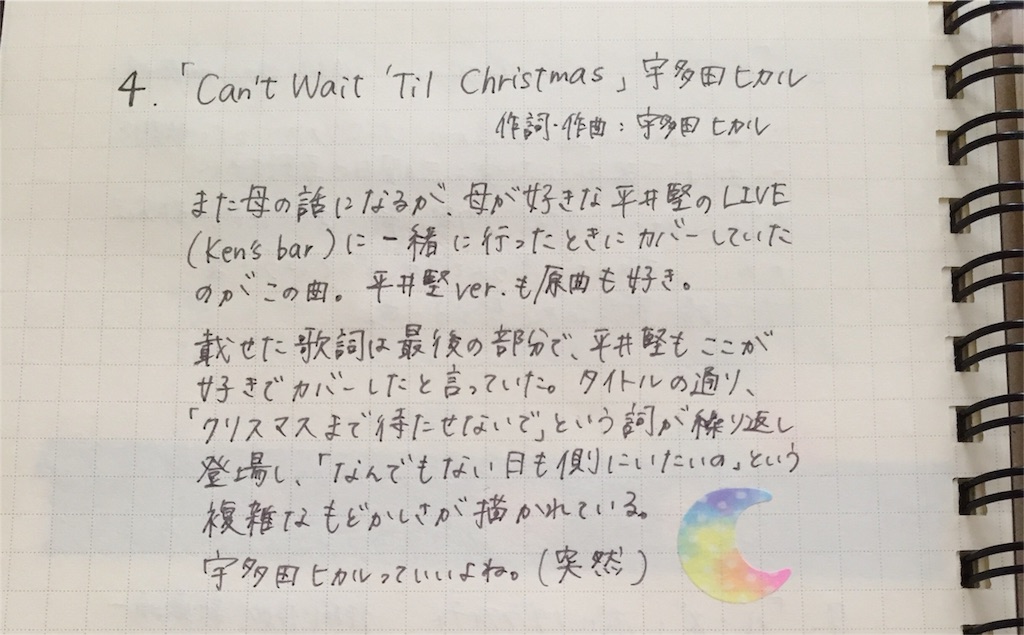 4. 「Can't Wait 'Til Christmas」宇多田ヒカル
作詞・作曲：宇多田ヒカル
また母の話になるが、母が好きな平井堅のLIVE
(Ken's bar)に一緒に行ったときにカバーしていた
のがこの曲。平井堅ver.も原曲も好き。
載せた歌詞は最後の部分で、平井堅もここが
好きでカバーしたと言っていた。タイトルの通り、
「クリスマスまで待たせないで」という詞が繰り返し
登場し、「なんでもない日も側にいたいの」という
複雑なもどかしさが描かれている。
宇多田ヒカルっていいよね。(突然)